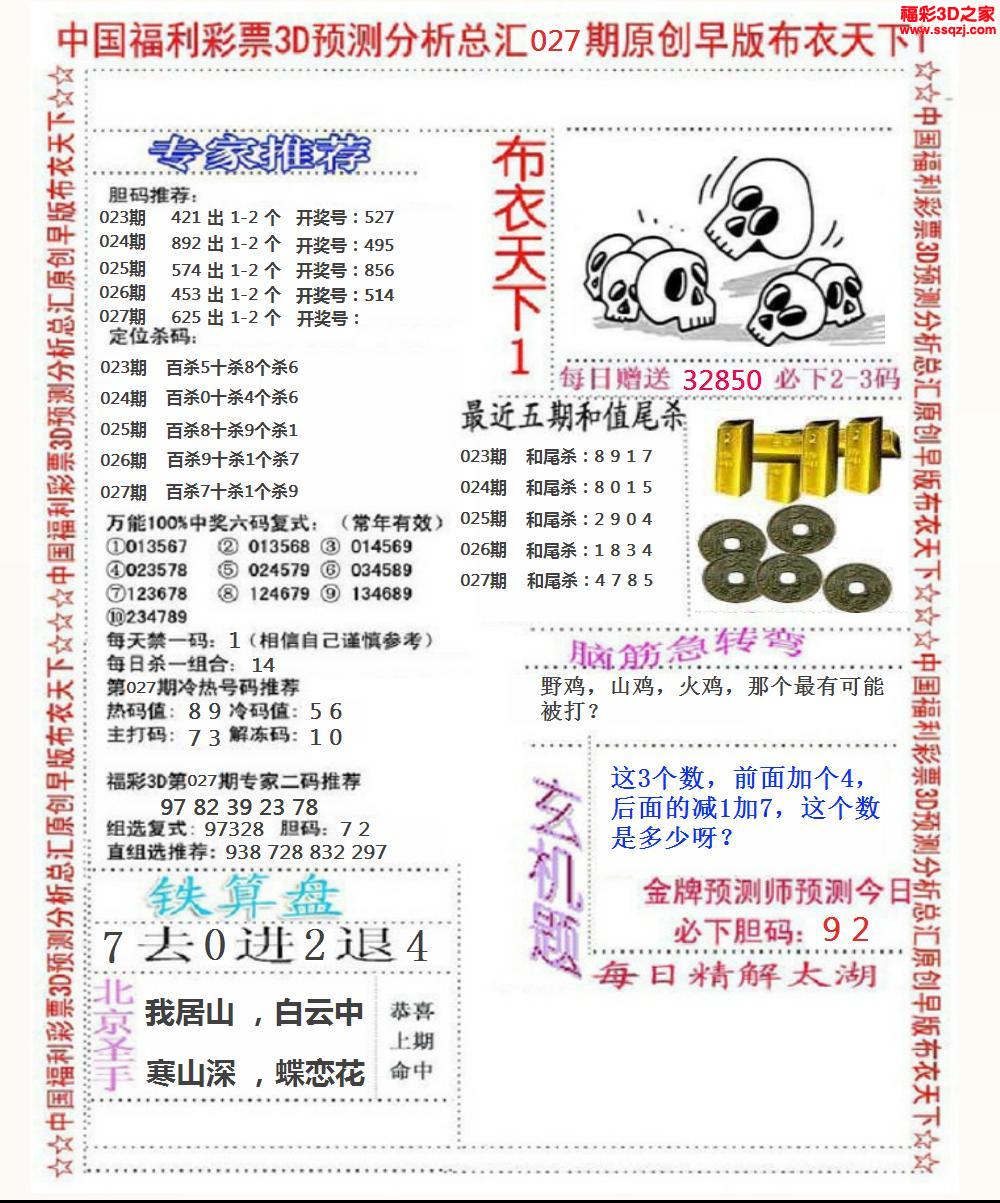 福彩3D之家
www.ssqzj.com
中国福利彩票3D预测分析总汇027期原创早版布衣天下1
☆☆中国福利彩票3D预测分析总汇原创早版布衣天下☆☆☆中国福利彩票3D预测分析总汇原创早版布衣天下☆☆
专家推荐
胆码推荐：
023期 421 出 1-2 个 开奖号：527
024期 892 出 1-2 个 开奖号：495
025期 574 出 1-2 个 开奖号：856
026期 453 出 1-2 个 开奖号：514
027期 625 出 1-2 个 开奖号：
定位杀码：
023期 百杀5十杀8个杀6
024期 百杀0十杀4个杀6
025期 百杀8十杀9个杀1
026期 百杀9十杀1个杀7
027期 百杀7十杀1个杀9
万能100%中奖六码复式：（常年有效）
①013567 ② 013568 ③ 014569
④023578 ⑤ 024579 ⑥ 034589
⑦123678 ⑧ 124679 ⑨ 134689
⑩234789
每天禁一码：1（相信自己谨慎参考）
每日杀一组合：14
第027期冷热号码推荐
热码值：8 9 冷码值：5 6
主打码：7 3 解冻码：1 0
福彩3D第027期专家二码推荐
97 82 39 23 78
组选复式：97328 胆码：7 2
直组选推荐：938 728 832 297
铁算盘
7去0进2退4
北京圣手
我居山 ，白云中
寒山深 ，蝶恋花
恭喜
上期
命中
布衣天下1
每日赠送 32850 必下2-3码
最近五期和值尾杀
023期 和尾杀：8 9 1 7
024期 和尾杀：8 0 1 5
025期 和尾杀：2 9 0 4
026期 和尾杀：1 8 3 4
027期 和尾杀：4 7 8 5
脑筋急转弯
野鸡，山鸡，火鸡，那个最有可能
被打？
玄机题
这3个数，前面加个4，
后面的减1加7，这个数
是多少呀？
金牌预测师预测今日
必下胆码：9 2
每日精解太湖
☆☆中国福利彩票3D预测分析总汇原创早版布衣天下☆☆☆中国福利彩票3D预测分析总汇原创早版布衣天下☆☆